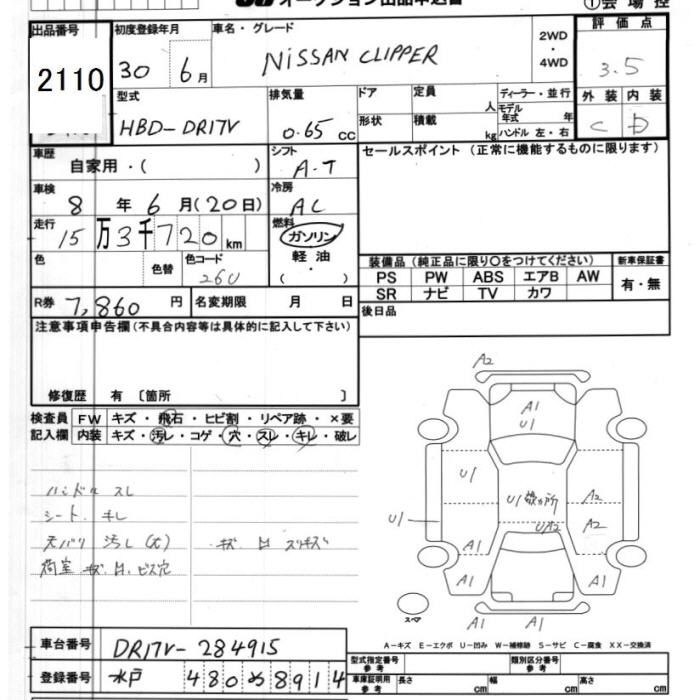 オークション出品申込書
①会場控
出品番号 初度登録年月 車名・グレード 2WD・4WD 評価点
2110 30 6月 NISSAN CLIPPER 3.5
型式 排気量 ドア 定員 人 ディーラー・並行 外装 内装
HBD-DR17V 0.65 CC 形状 積載 kg モデル年式 年 ハンドル 左・右 C D
車歴 シフト セールスポイント (正常に機能するものに限ります)
自家用・( ) A-T
車検 冷房
8年6月(20日) AC
走行 燃料
15万3千720km ガソリン
軽油
(・)
色 色替 色コード
26U
装備品 (純正品に限り○をつけてください) 新車保証書
PS PW ABS エアB AW 有・無
SR ナビ TV カワ
R券 7,860円 名変期限 月 日 後日品
注意事項申告欄(不具合内容等は具体的に記入して下さい)
修復歴 有 〔箇所 〕
検査員 FW キズ・飛石・ヒビ割・リペア跡・×要
記入欄 内装 キズ・汚レ・コゲ・穴・スレ・キレ・破レ
ハンドル スレ
シート キレ
天バリ 汚レ(大) キズ 凹 スリキズ
荷室 キズ、凹、ビス穴
A2
A1
U1
U1 U1 A2
U1 UA2 A2
A1 A1
A1 A1
A1 A1
スペア
A-キズ E-エクボ U-凹み W-補修跡 S-サビ C-腐食 XX-交換済
車台番号 DR17V-284915
型式指定番号 参考 類別区分番号 参考
登録番号 水戸 480 め 8914
車庫証明用 参考 長さ cm 幅 cm 高さ cm